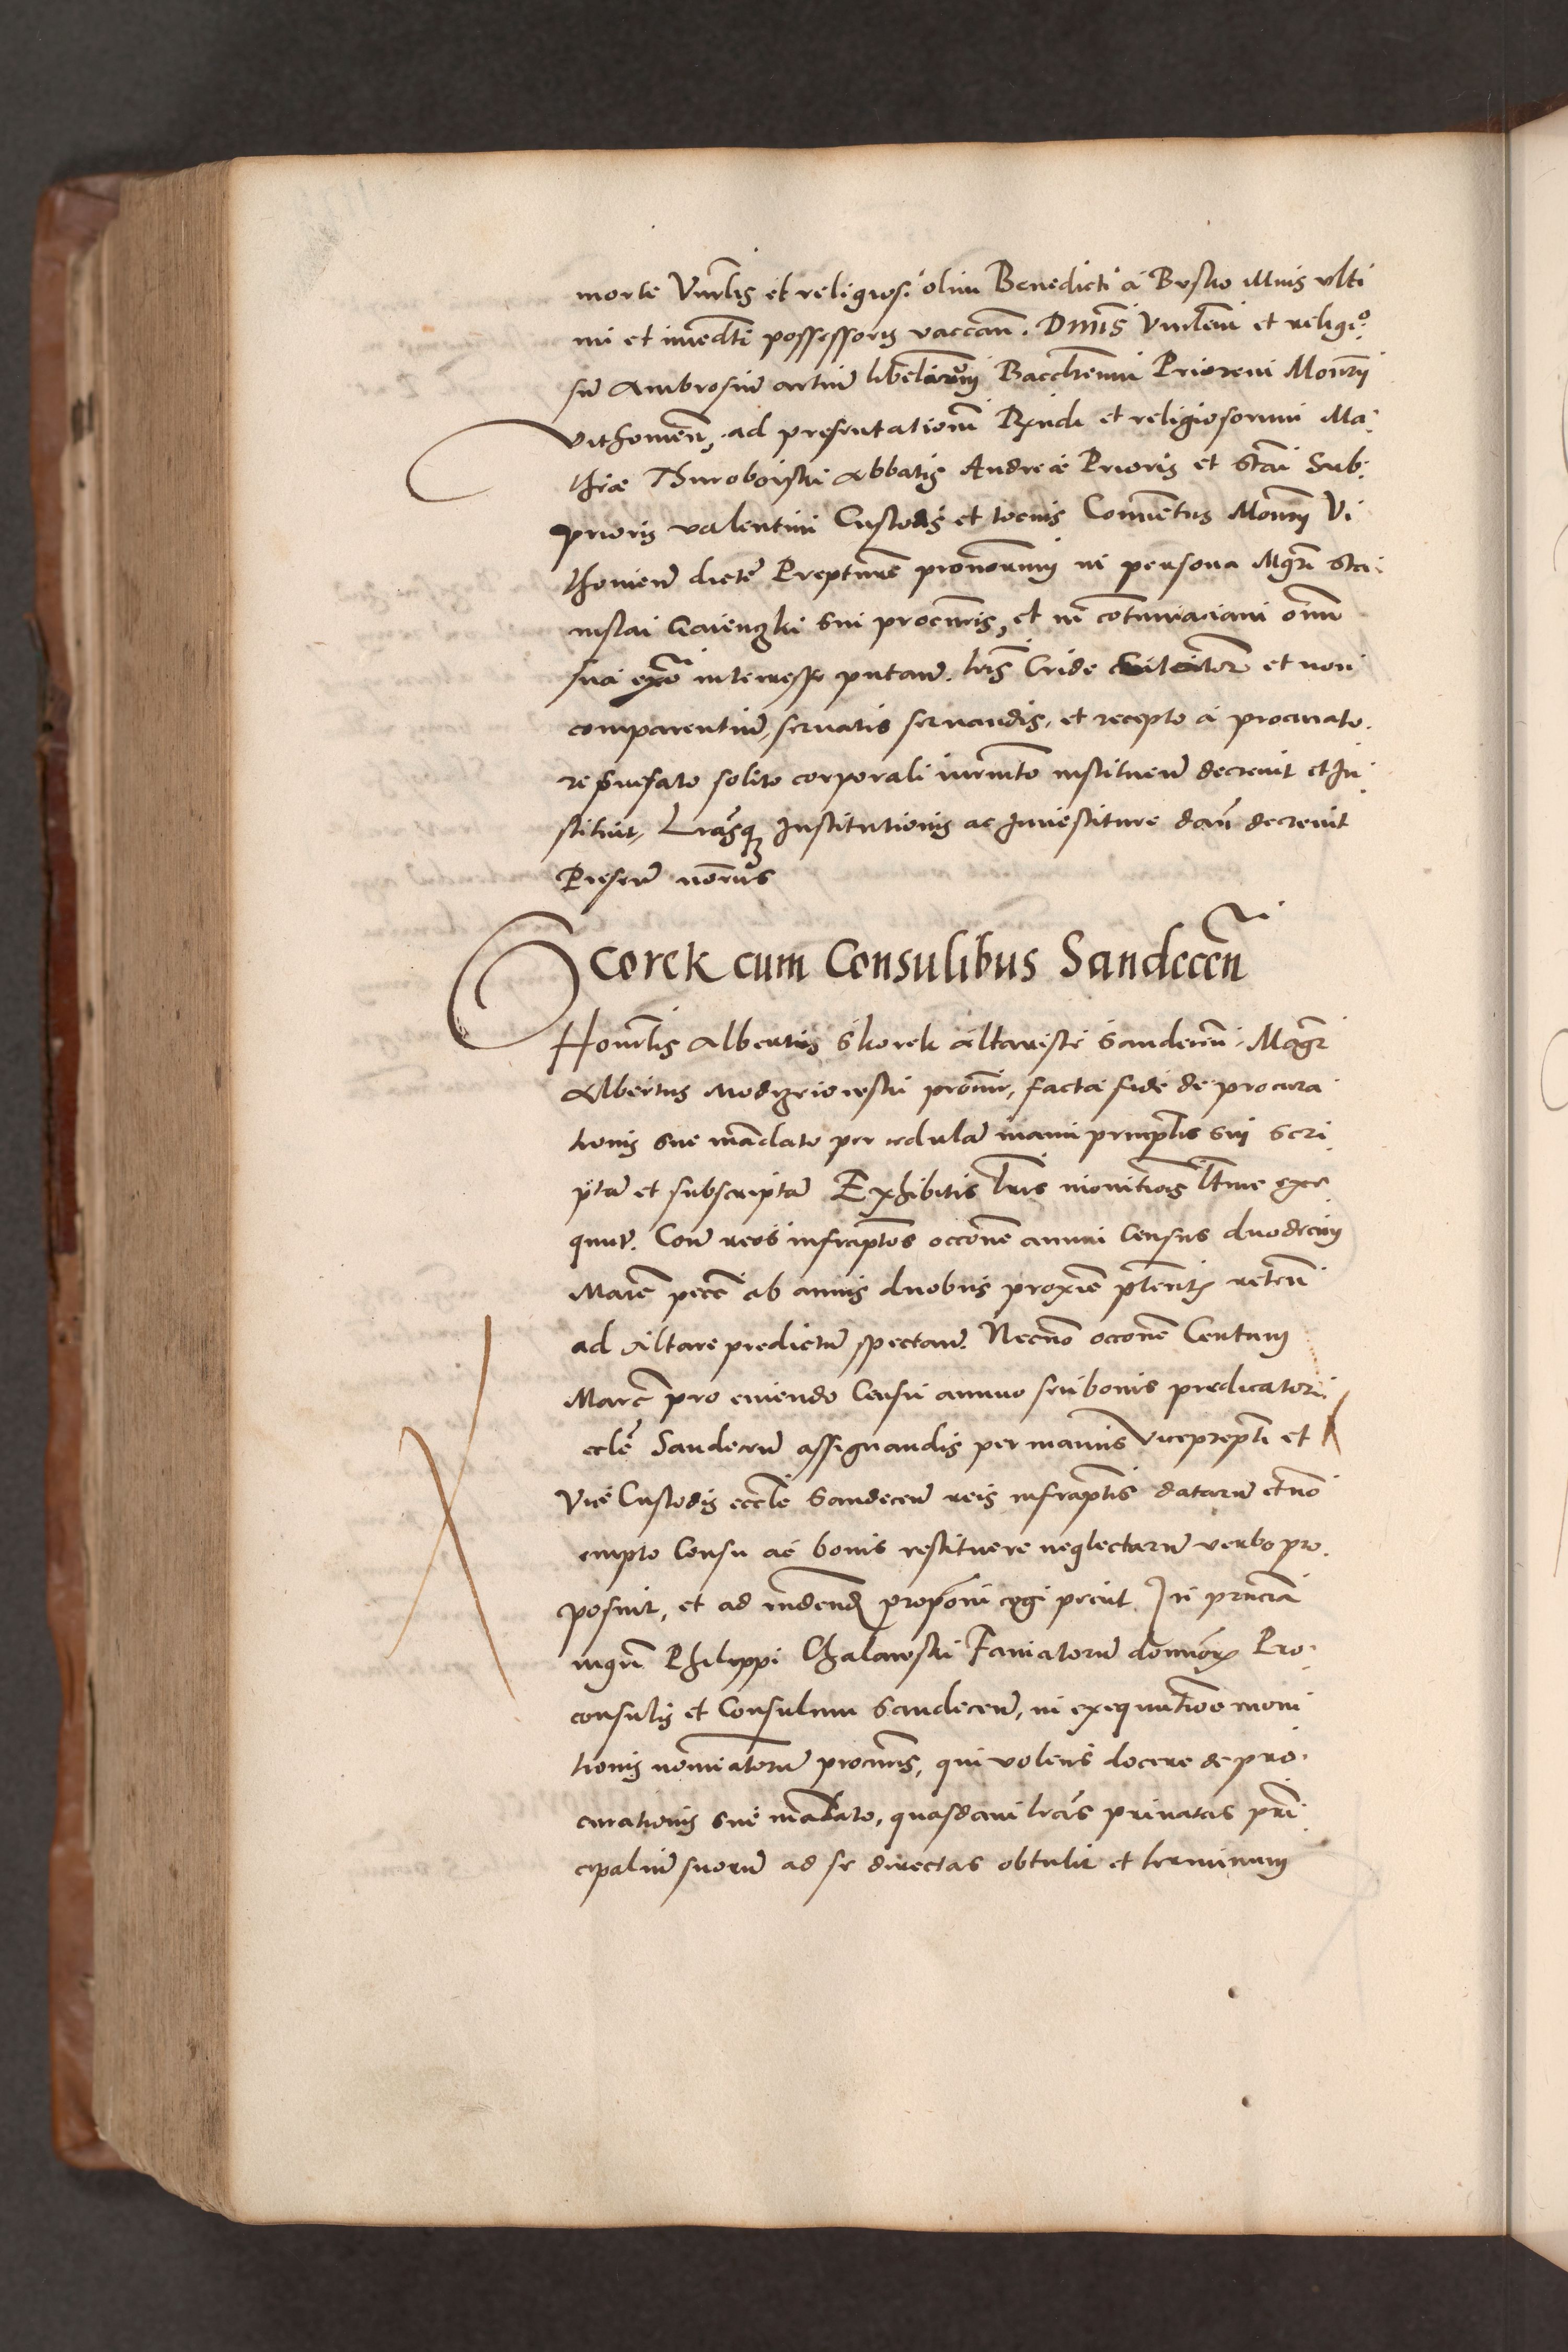 morte Vnrlis et religiosi olim Benedicti a Busko illius vlti
mi et imediti possessoris vaccan. Dnus Vnrlem et religio
sum Ambrosium artium liberalium Baccleum Priorem Monrii
Vithonien, ad presentationem Rndi et religiosorum Ma.
thiæ Thuroboiski Abbatis Andreæ Prioris et Stai Sub.
prioris valentini Custodis et tocius Conuentus Monrij Vi
thonien dicte Prepture pronorum in persona Mgri Sta.
nislai sui procuris, et in contumaciam omn
sua exo interesse putan. lris Cride et non
comparentium, seruatis seruandis, et recepto a procurato.
re prefato solito corporali iurmto instituen decreuit et In
stituit, Lrasque Institutionis ac Inuestiture dan decreuit
Presen noribus
Scorek cum Consulibus Sandecen
Honrlis Albertus Skorek altariste Sandecen. Mgr
Albertus Modzrioieski procur, facta fide de procura
tionis sue mandato per cedulam manu prncplis sui scri
ptam et subscriptam Exhibitis lris monitiois ltme exe
qunt. Con reos infrapto​s occone annui Census duodecim
Marc pecc ab annis duobus proxime pteritis reten
ad Altare predictum spectan. Necno occone Centum
Marc pro emendo Censu annuo seu bonis predicatori
eccle Sandecen assignandis per manus vicepreptti et
Vice Custodis eccle Sandecen reis infraptis datarum et no
empto Censu ac bonis restituere neglectarum verbo pro.
posuit, et ad rndend proponi cogi peciit. In prncia
mgri Philippi Chalawski Famatorum dominorum Pro.
consulis et Consulum Sandecen, in exequutioe moni
tionis nominatorum procuris, qui volens docere de pro.
curationis sue mandato, quasdam lras priuatas prin
cipalium suorum ad se directas obtulit et terminum